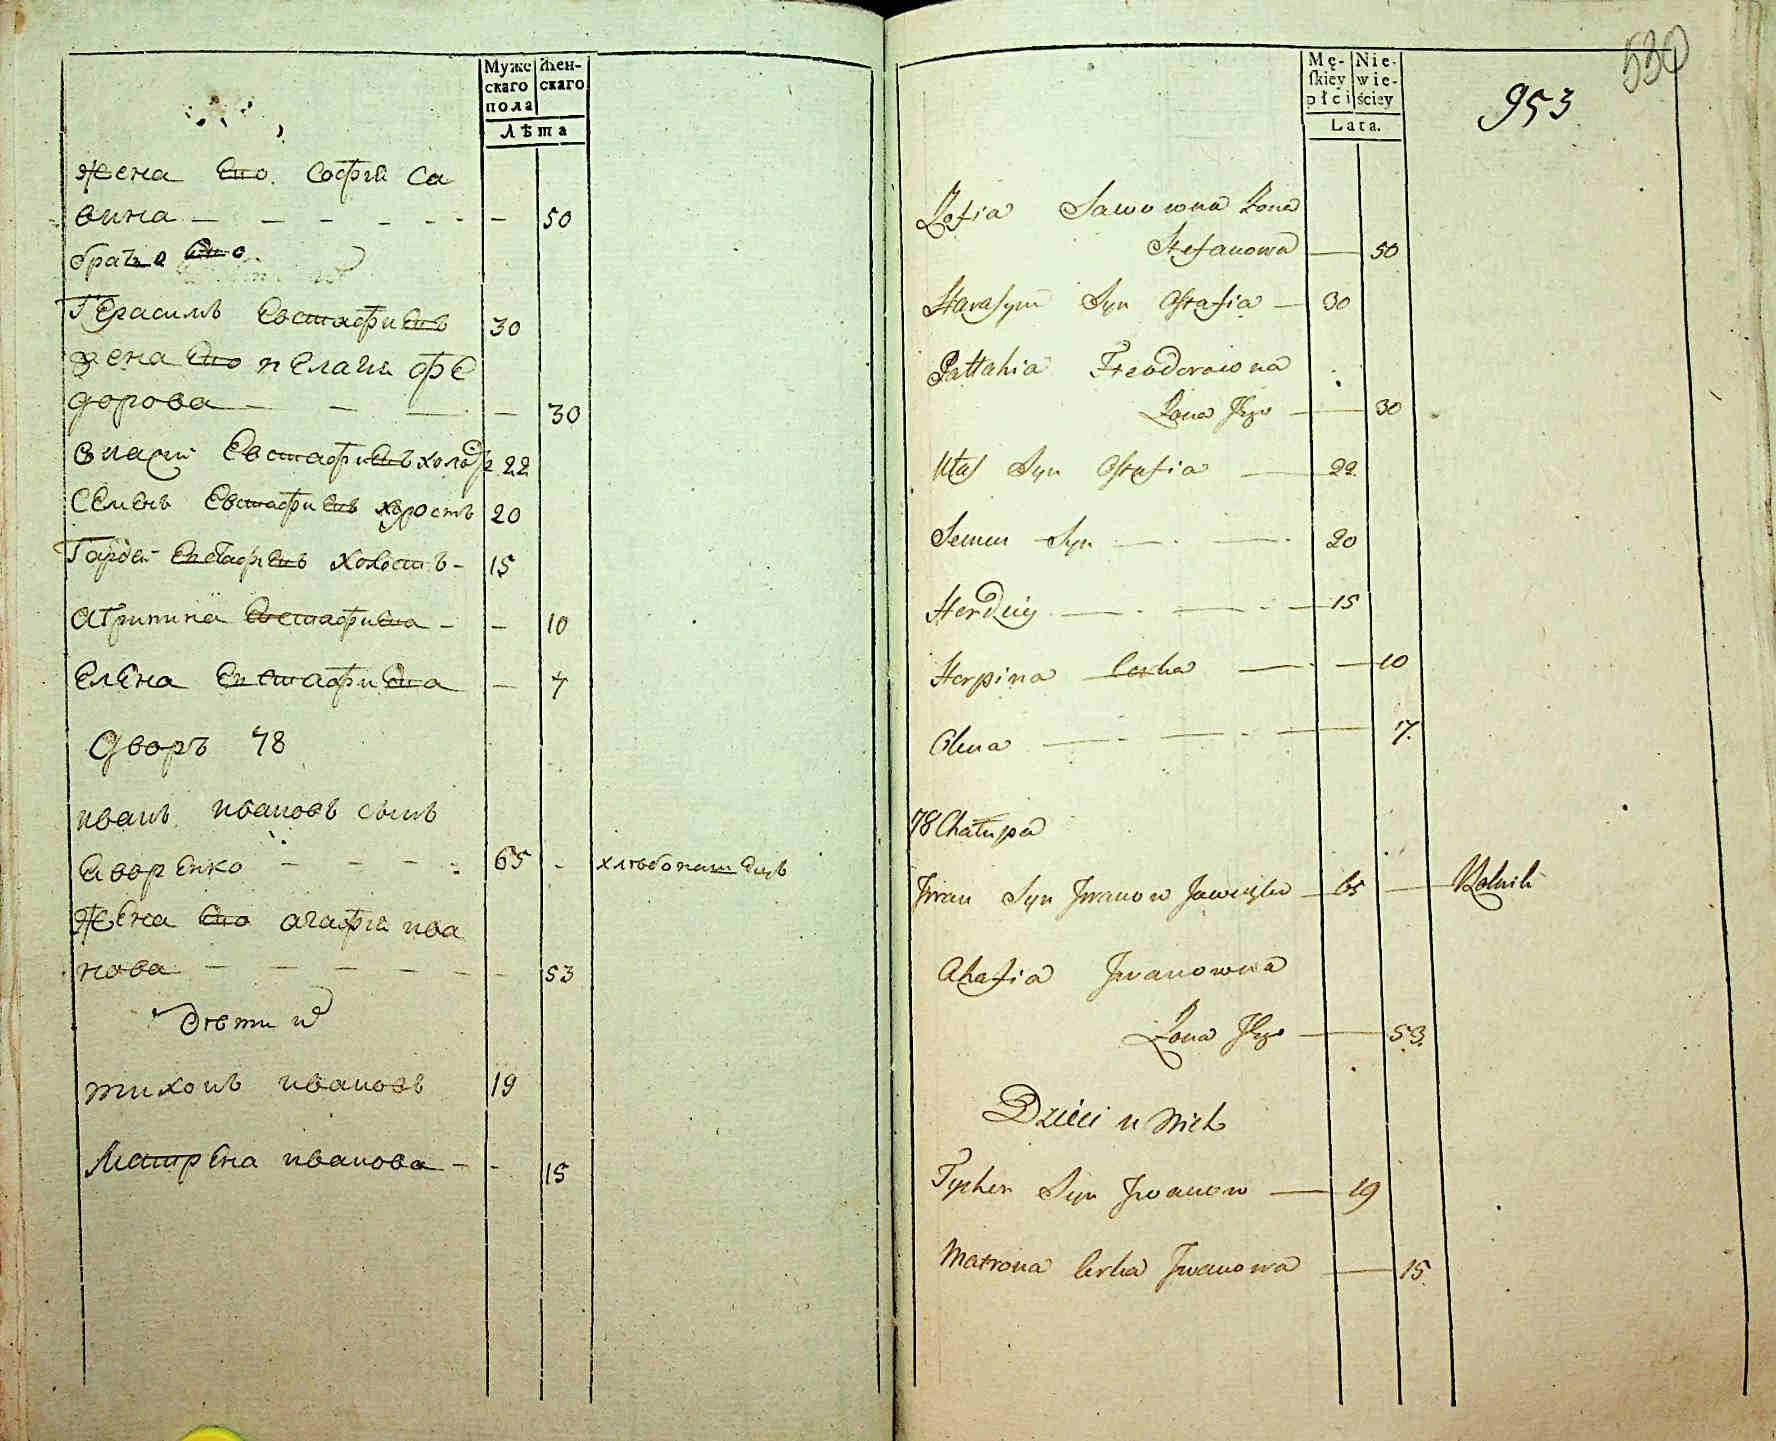 Муже
скаго
пола
Жен-
скаго
Лѣта
Жена Его Софiя Са
вина — — — — — — 50
братья Его
Герасимъ Евстафиевъ 30
жена Его пелагия фе
дорова — — — — 30
Власъ Евстафиевъ холост 22
Семенъ Евстафиевъ холостъ 20
Гордей Евстафиевъ холостъ - 15
Агрипина Евстафиева - - 10
Елена Евстафиева - 7
Дворъ 78
иванъ ивановъ сынъ
Яворенко - - - 65 - хлѣбопашецъ
Жена Его агафiя ива
нова — — — — — — 53
Дѣти ихъ
тихонъ ивановъ 19
Матрена иванова - - 15
530
953
Mę-
skiey
płci
Nie-
wie-
ściey
Lata.
Zofia Sawowna Żona
Stefanowa — 50
Harasym Syn Ostafia — 30
Pallahia Fteodorowna
Żona Jego — 30
Ułas Syn Ostafia — 22
Semen Syn — . — . 20
Herdziey — . — . — 15
Horpina Corka — . — 10
Olena — . — . — 17.
78 Chałupa
Jwan Syn Jwanow — 65 — Rolnik
Ahafia Jwanowna
Żona Jego — 53.
Dzieci u Nich
Tychon Syn Jwanow — 19
Matrona Corka Jwanowa — 15